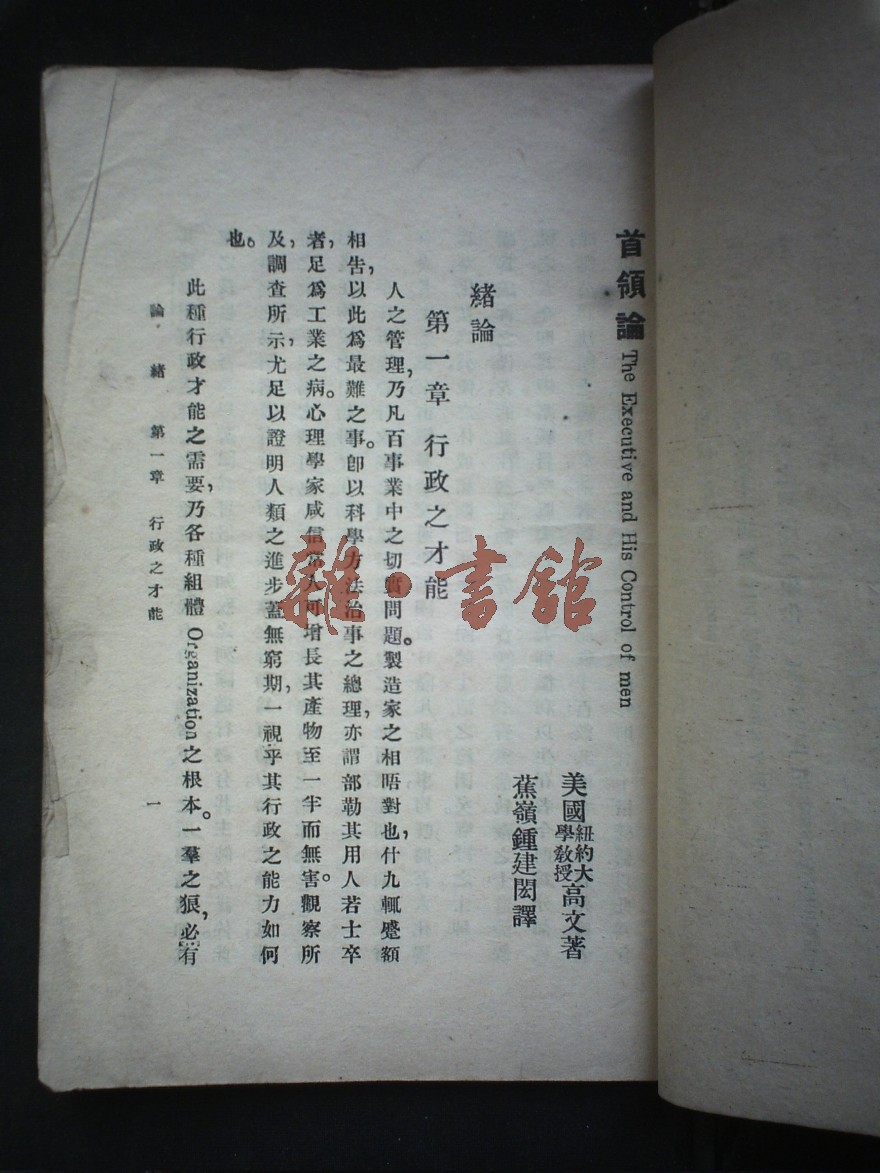 首領論 The Executive and His Control of men
美國紐約大學教授高文著
蕉嶺鍾建閎譯
緒論
第一章 行政之才能
人之管理,乃凡百事業中之切實問題。製造家之相晤對也,什九輒蹙額
相告,以此爲最難之事。卽以科學方法治事之總理,亦謂部勒其用人若士卒
者,足爲工業之病。心理學家咸信常人可增長其產物至一半而無害。觀察所
及,調查所示,尤足以證明人類之進步蓋無窮期,一視乎其行政之能力如何
也。
此種行政才能之需要,乃各種組體 Organization 之根本。一羣之狼,必有
論 緒 第一章 行政之才能 一
雜·書館